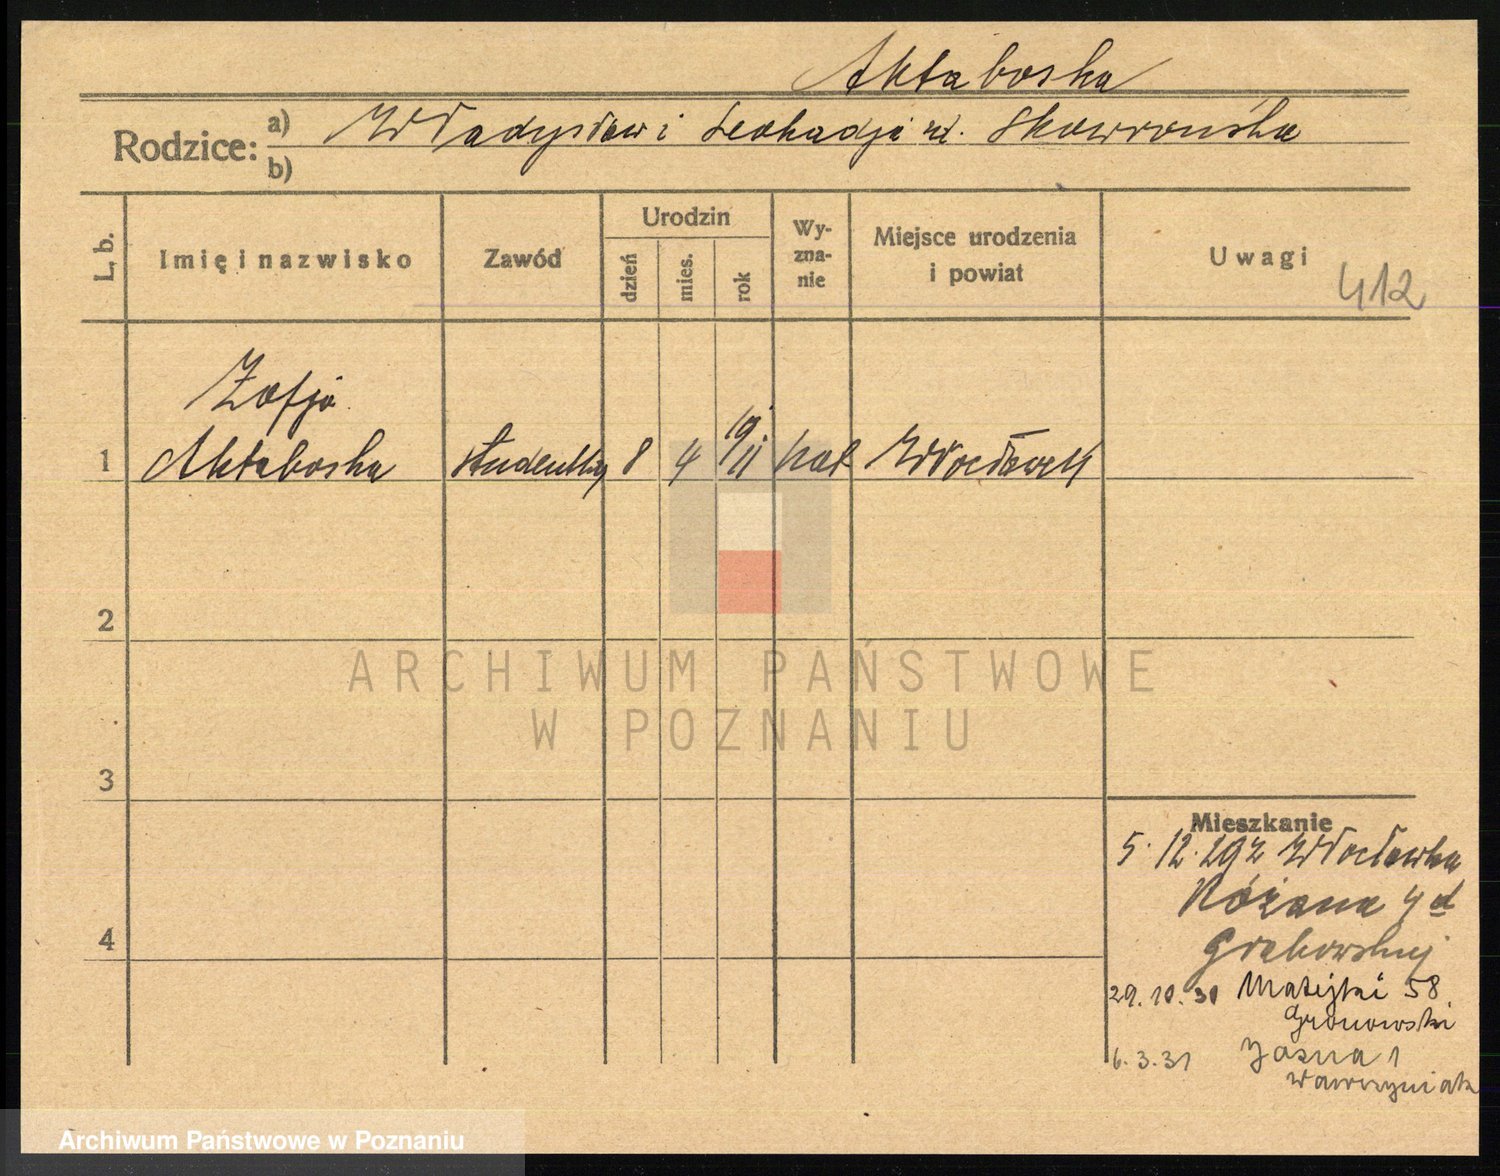 Akłaboska
Rodzice: a) Władysław i Leokadja z d. Skowrońska
b)
L. b.
Imię i nazwisko
Zawód
Urodzin
dzień
mies.
rok
Wy-
zna-
nie
Miejsce urodzenia
i powiat
Uwagi
412
Zofja
1 Akłaboska studentka 8 4 1911 kat Włocławek
2
3
4
Mieszkanie
5.12.29 z Włocławka
Różana 4 d
Grabowskiej
29.10.30 Matejki 58
Gronowski
6.3.31 Jasna 1
Wawrzyniak
ARCHIWUM PAŃSTWOWE
W POZNANIU
Archiwum Państwowe w Poznaniu